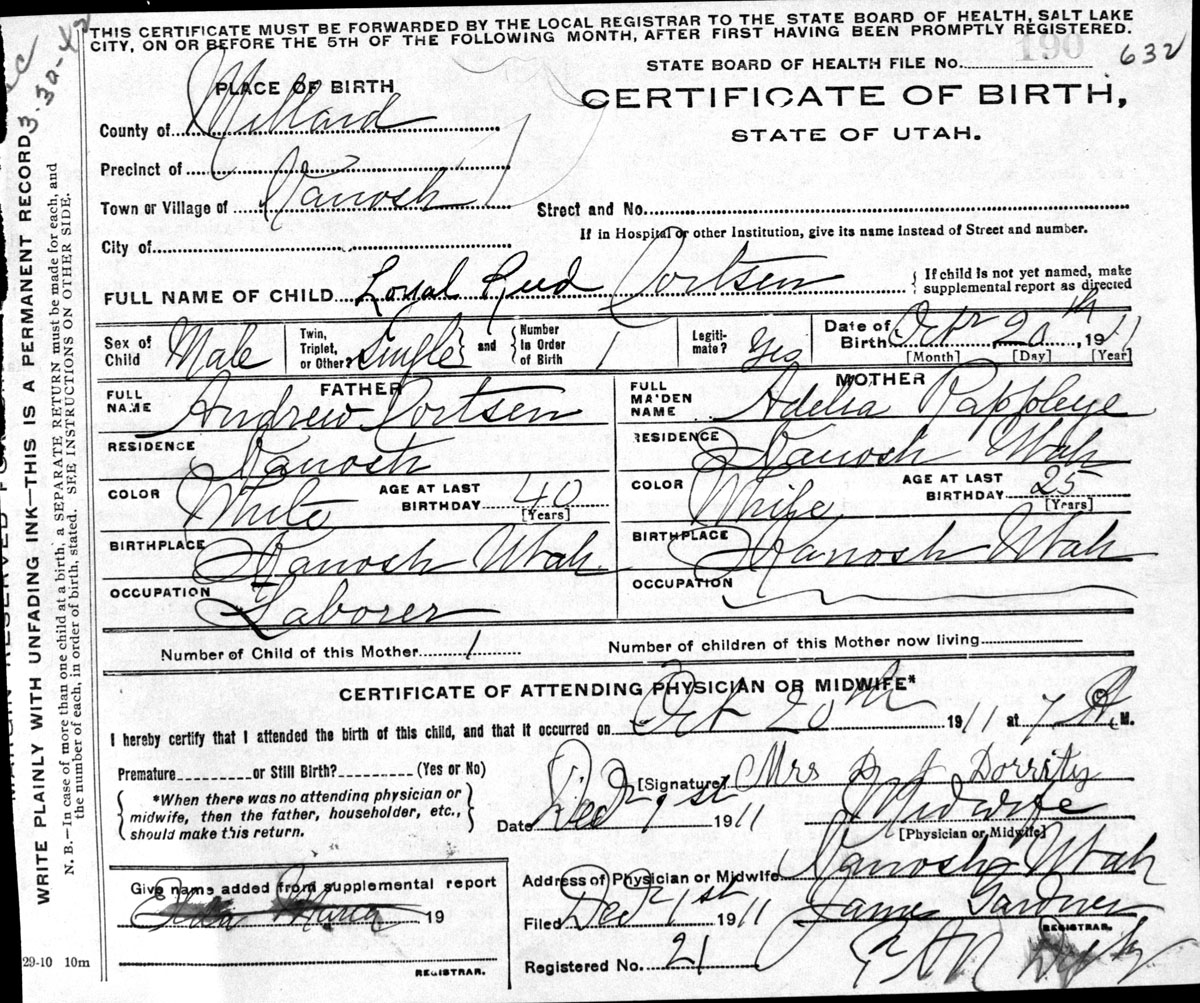 THIS CERTIFICATE MUST BE FORWARDED BY THE LOCAL REGISTRAR TO THE STATE BOARD OF HEALTH, SALT LAKE
CITY, ON OR BEFORE THE 5TH OF THE FOLLOWING MONTH, AFTER FIRST HAVING BEEN PROMPTLY REGISTERED.
190
632
STATE BOARD OF HEALTH FILE No.
PLACE OF BIRTH
CERTIFICATE OF BIRTH,
STATE OF UTAH.
County of Millard
Precinct of
Town or Village of Kanosh
Street and No.
If in Hospital or other Institution, give its name instead of Street and number.
City of
FULL NAME OF CHILD Loyal Reed Dortsen
{ If child is not yet named, make
supplemental report as directed
Sex of Child Male
Twin, Triplet, or Other? Single } and { Number In Order of Birth 1
Legiti-mate? Yes
Date of Birth Oct 20th, 1911
[Month] [Day] [Year]
FATHER
FULL NAME Andrew Dortsen
MOTHER
FULL MAIDEN NAME Adelia Pappleye
RESIDENCE Kanosh
RESIDENCE Kanosh Utah
COLOR White AGE AT LAST BIRTHDAY 40 [Years]
COLOR AGE AT LAST BIRTHDAY 25 [Years]
BIRTHPLACE Kanosh Utah
BIRTHPLACE Kanosh Utah
OCCUPATION Laborer
OCCUPATION
Number of Child of this Mother 1 Number of children of this Mother now living
CERTIFICATE OF ATTENDING PHYSICIAN OR MIDWIFE*
I hereby certify that I attended the birth of this child, and that it occurred on Oct 20th 1911 at 7 A M.
Premature or Still Birth? (Yes or No)
{ *When there was no attending physician or
midwife, then the father, householder, etc.,
should make this return. }
[Signature] Mrs Dorrity
Date Dec 1st 1911 Midwife
[Physician or Midwife]
Address of Physician or Midwife Kanosh Utah
Give name added from supplemental report
19
REGISTRAR.
Filed Dec 1st 1911 James Gardner
REGISTRAR.
Registered No. 21
29-10 10m
WRITE PLAINLY WITH UNFADING INK—THIS IS A PERMANENT RECORD
N. B.—In case of more than one child at a birth, a SEPARATE RETURN must be made for each, and
the number of each, in order of birth, stated. SEE INSTRUCTIONS ON OTHER SIDE.